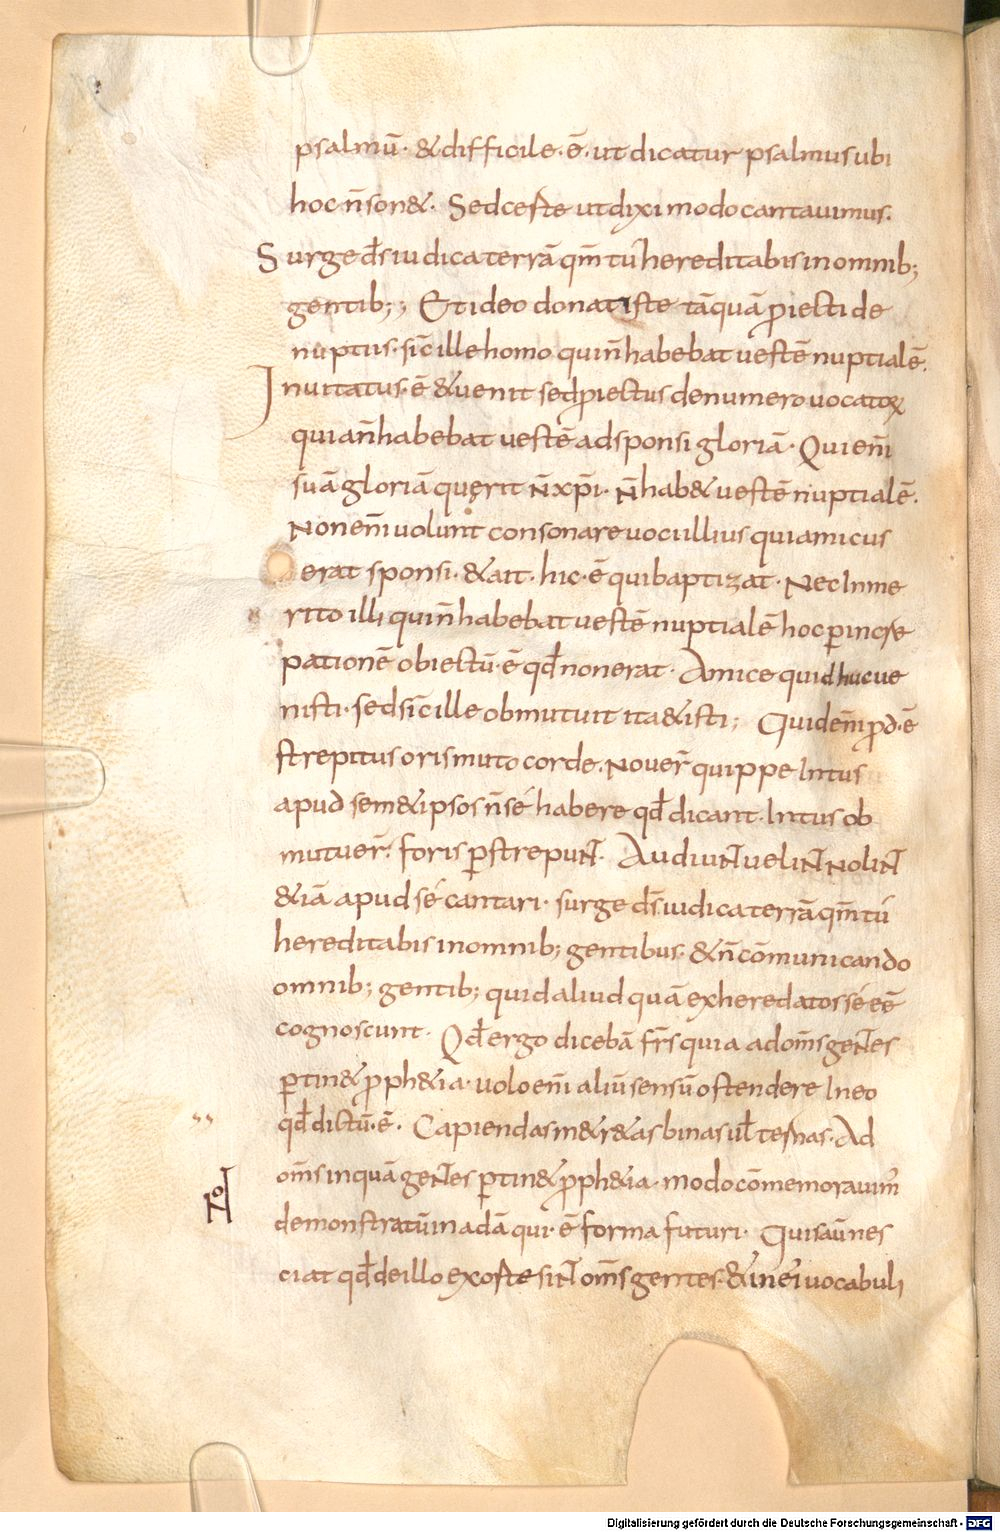 psalmū· &difficile·ē·ut dicatur psalmus ubi
hoc n̄ son&· Sed certe ut dixi modo cantauimus.
Surge d̄s iudica terrā qm̄ tu hereditabis in omnib;
gentib;; Et ideo donatiste tāquā ꝓiecti de
nuptus· sic̄ ille homo qui n̄ habebat uestē nuptialē.
Inuitatus·ē &uenit sed ꝓiectus denumero uocatoꝝ
quia n̄ habebat uestē ad sponsi gloriā· Qui em̄
suā gloriā querit n̄ xp̄i· n̄ hab& uestē nuptialē·
Non em̄ uolunt consonare uoci illius qui amicus
erat sponsi· & ait· hic·ē qui baptizat· Nec inme
rito illi qui n̄ habebat uestē nuptialē hoc ꝑ incre
pationē obiectū·ē qd̄ non erat· Amice quid huc ue
nisti· sed sic̄ ille obmutuit ita & isti; Quid em̄ ꝓd·ē
strepitus oris muto corde· Nouer̄ quippe intus
apud sem&ipsos n̄ sé habere qd̄ dicant· Intus ob
mutuer̄· foris ꝑstrepunt· Audiunt uelint nolint
&iā apud sé cantari· surge d̄s iudica terrā qm̄ tú
hereditabis in omnib; gentibus· & n̄ cōmunicando
omnib; gentib; quid aliud quā exheredatos sé eē
cognoscunt· Qd̄ ergo dicebā fr̄s quia ad om̄s gentes
ꝑtin& ꝓph&ia· uolo em̄ aliū sensū ostendere in eo
qd̄ dictū·ē· Capiendas m&r&as binas ul̄ ternas· Ad
om̄s inquā gentes ꝑtin& ꝓph&ia· modo cōmemorauim̄
demonstratū in adā qui·ē forma futuri· Quis aū nes
ciat qd̄ de illo exorte sint om̄s gentes· & in ei uocabuli
Digitalisierung gefördert durch die Deutsche Forschungsgemeinschaft - DFG